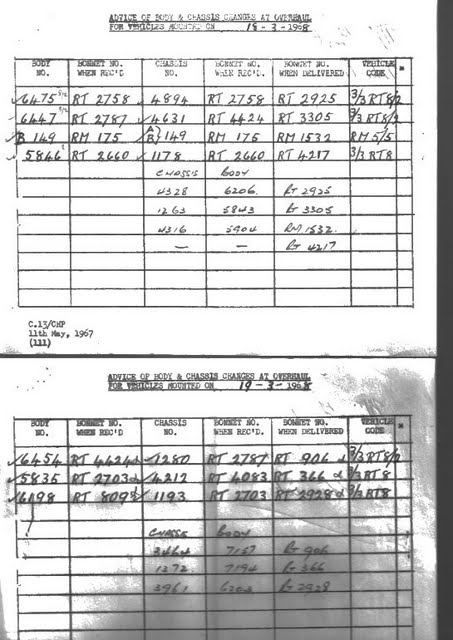 ADVICE OF BODY & CHASSIS CHANGES AT OVERHAUL
FOR VEHICLES MOUNTED ON 18-3-1968
BODY NO. BONNET NO. WHEN REC'D CHASSIS NO. BONNET NO. WHEN REC'D. BONNET NO. WHEN DELIVERED VEHICLE CODE *
✓6475 RT 2758 ✓4894 RT 2758 RT 2925 3/3 RT8/2
✓6447 RT 2787 ✓4631 RT 4424 RT 3305 3/3 RT8/2
✓B 149 RM 175 A B} 149 RM 175 RM 1532 RM 5/5
✓5846 RT 2660 ✓1178 RT 2660 RT 4217 3/3 RT8
CHASSIS BODY
4328 6206 RT 2925
1263 5843 RT 3305
4316 5904 RM 1532.
— — RT 4217
C.13/CHP
11th May, 1967
(111)
ADVICE OF BODY & CHASSIS CHANGES AT OVERHAUL
FOR VEHICLES MOUNTED ON 19-3-1968
BODY NO. BONNET NO. WHEN REC'D CHASSIS NO. BONNET NO. WHEN REC'D. BONNET NO. WHEN DELIVERED VEHICLE CODE *
✓6454 RT 4424 ✓1280 RT 2787 RT 906 3/3 RT8/2
✓5835 RT 2703 ✓4212 RT 4083 RT 366 3/3 RT8
✓6198 RT 809 ✓1193 RT 2703 RT 2928 3/3 RT8
CHASSIS BODY
3464 7157 RT 906
1372 7194 RT 366
3961 6203 RT 2928